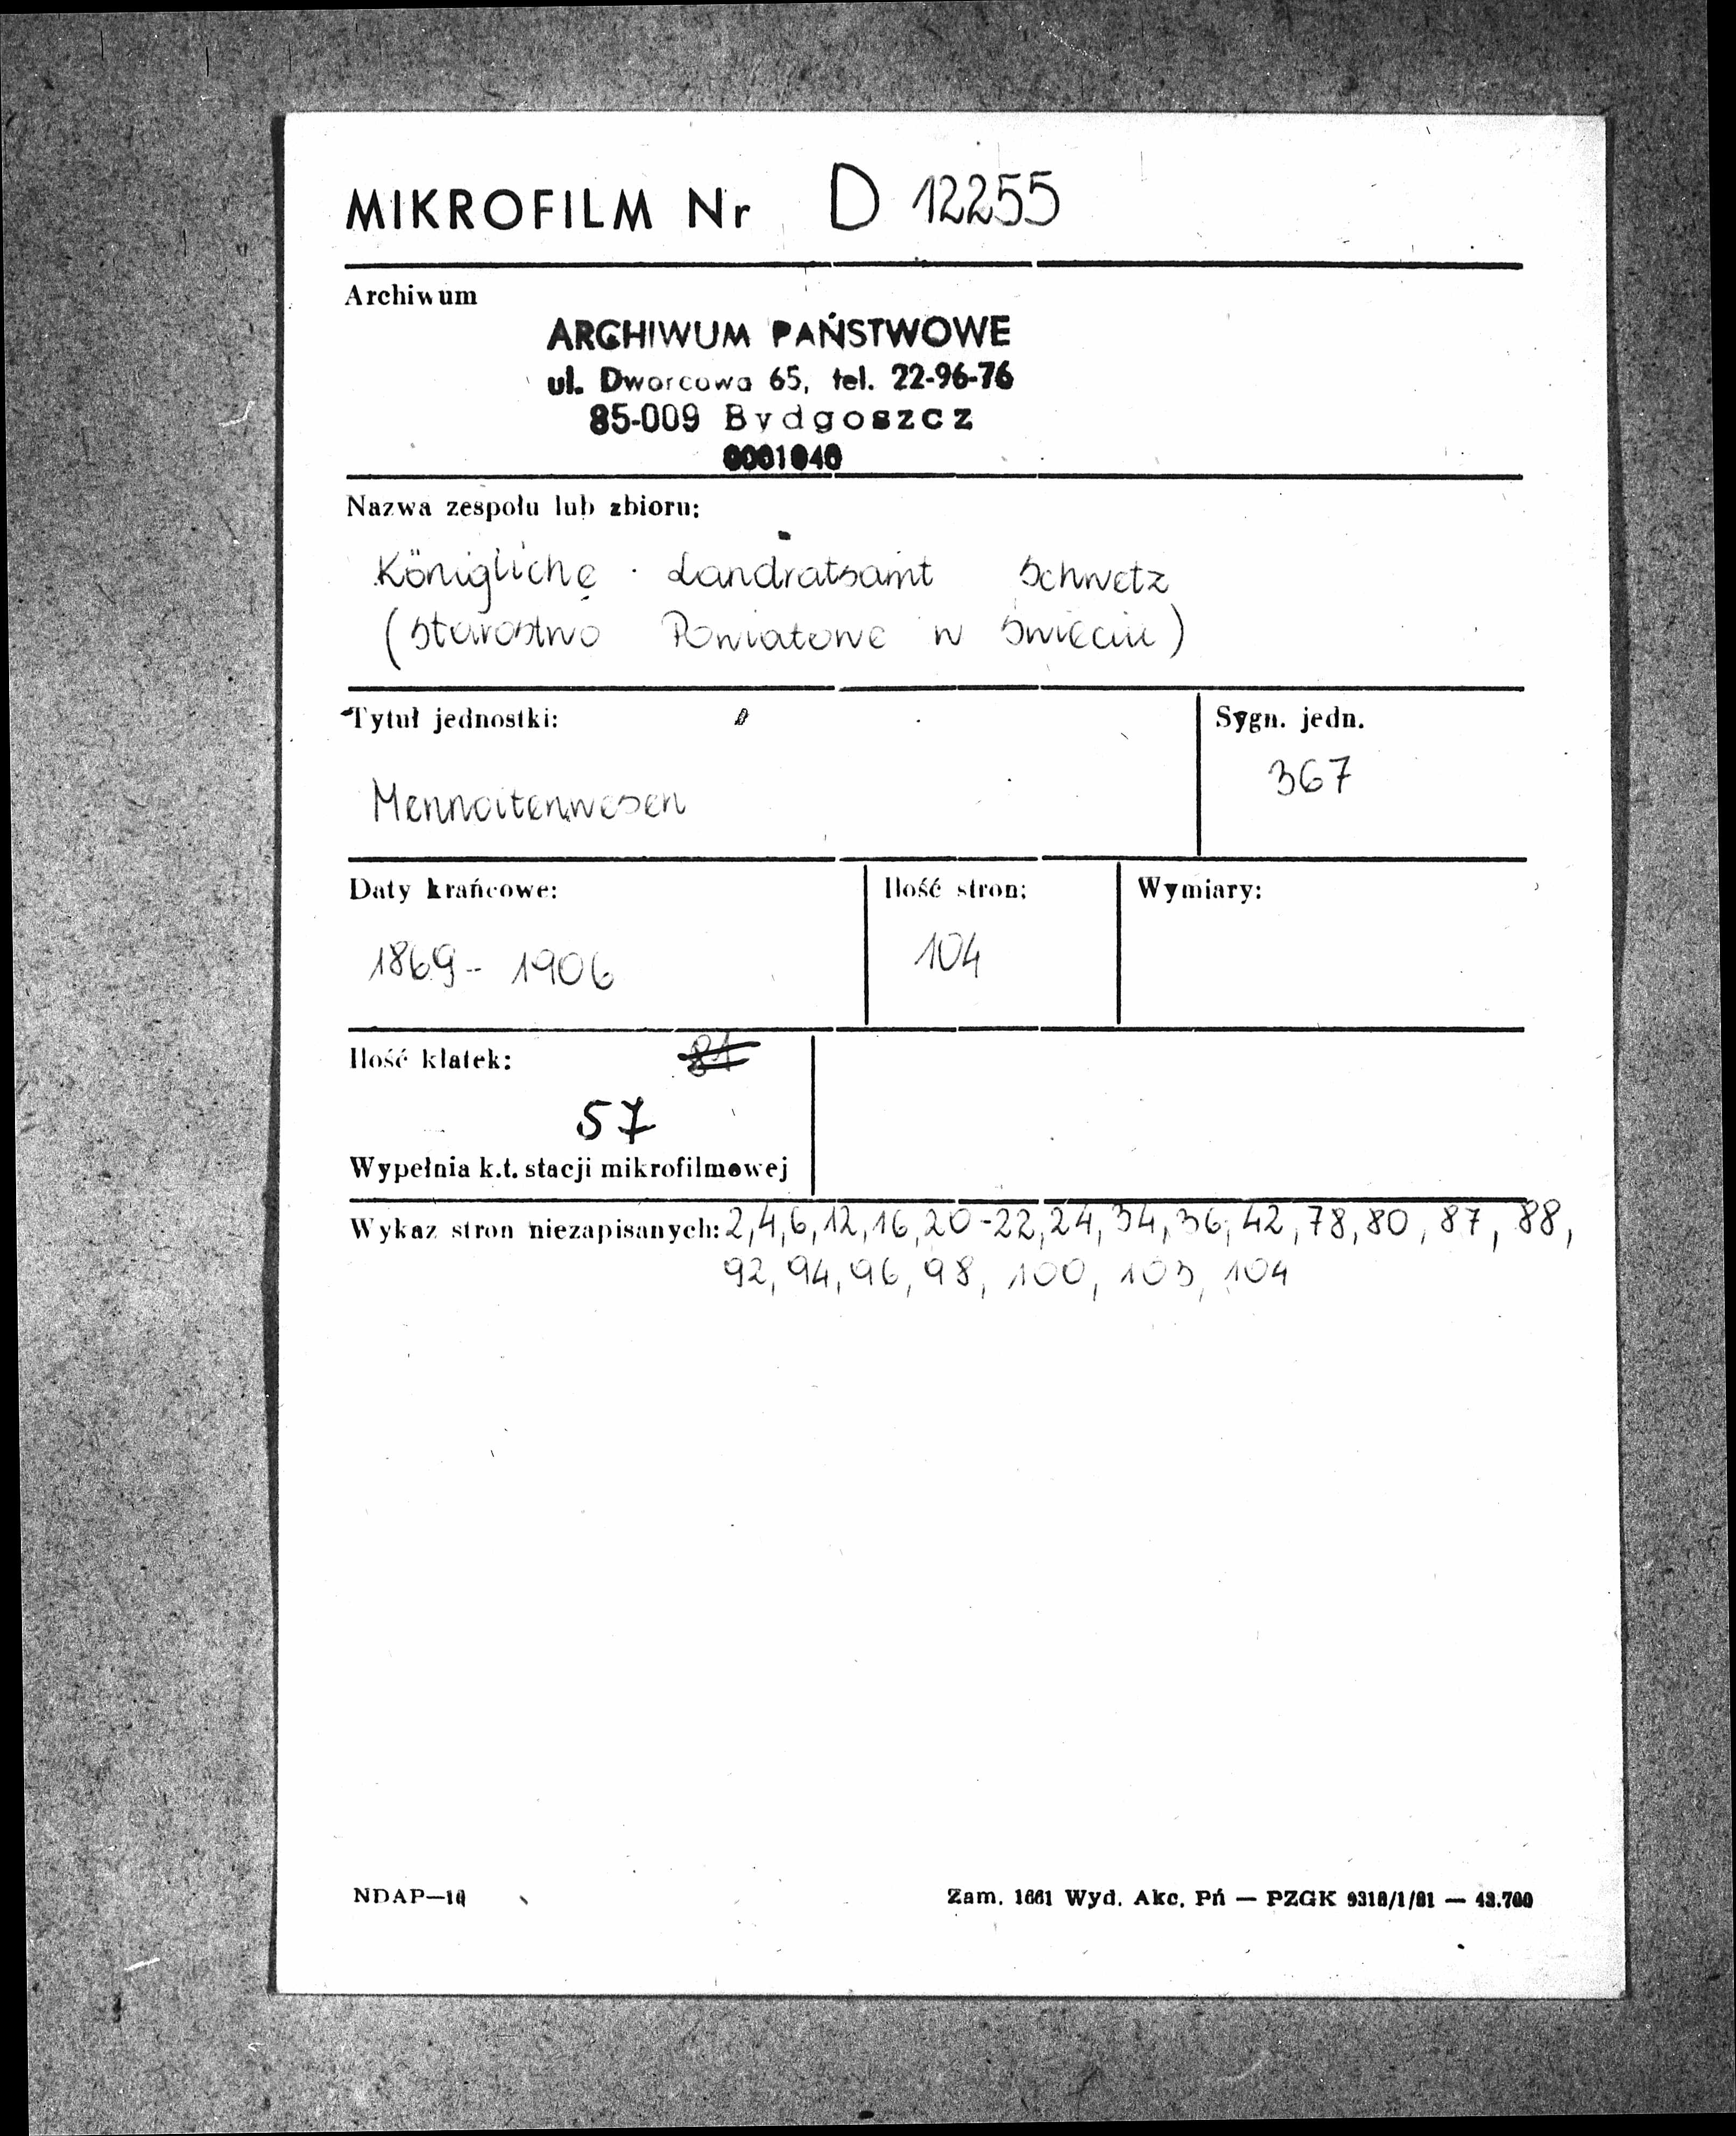 MIKROFILM Nr D 12255
Archiwum
ARCHIWUM PAŃSTWOWE
ul. Dworcowa 65, tel. 22-96-76
85-009 Bydgoszcz
0001040
Nazwa zespołu lub zbioru:
Königliche Landratsamt Schwetz
(Starostwo Powiatowe w Świeciu)
Tytuł jednostki:
Sygn. jedn.
367
Mennoitenwesen
Daty krańcowe:
Ilość stron:
Wymiary:
1869 - 1906
104
Ilość klatek:
57
Wypełnia k.t. stacji mikrofilmowej
Wykaz stron niezapisanych: 2,4,6,12,16,20-22,24,34,36,42,78,80,87,88,
92,94,96,98,100,103,104
NDAP—
Zam. 1661 Wyd. Akc. Pń — PZGK 9318/1/81 —